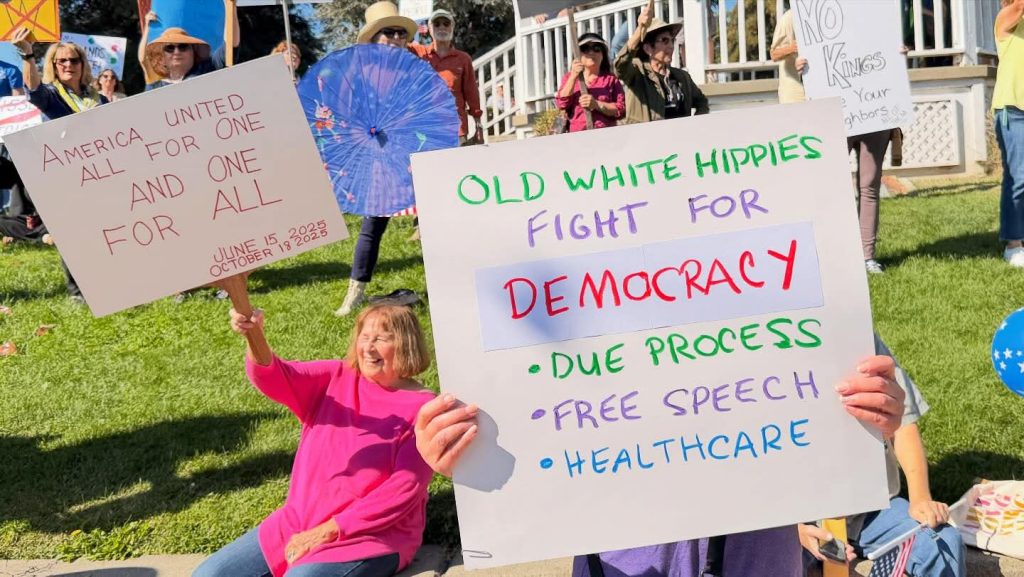 AMERICA UNITED
ALL FOR ONE
AND ONE
FOR ALL
JUNE 15, 2025
OCTOBER 18 2025
OLD WHITE HIPPIES
FIGHT FOR
DEMOCRACY
• DUE PROCESS
• FREE SPEECH
• HEALTHCARE
NO
KINGS
YOUR
NEIGHBORS